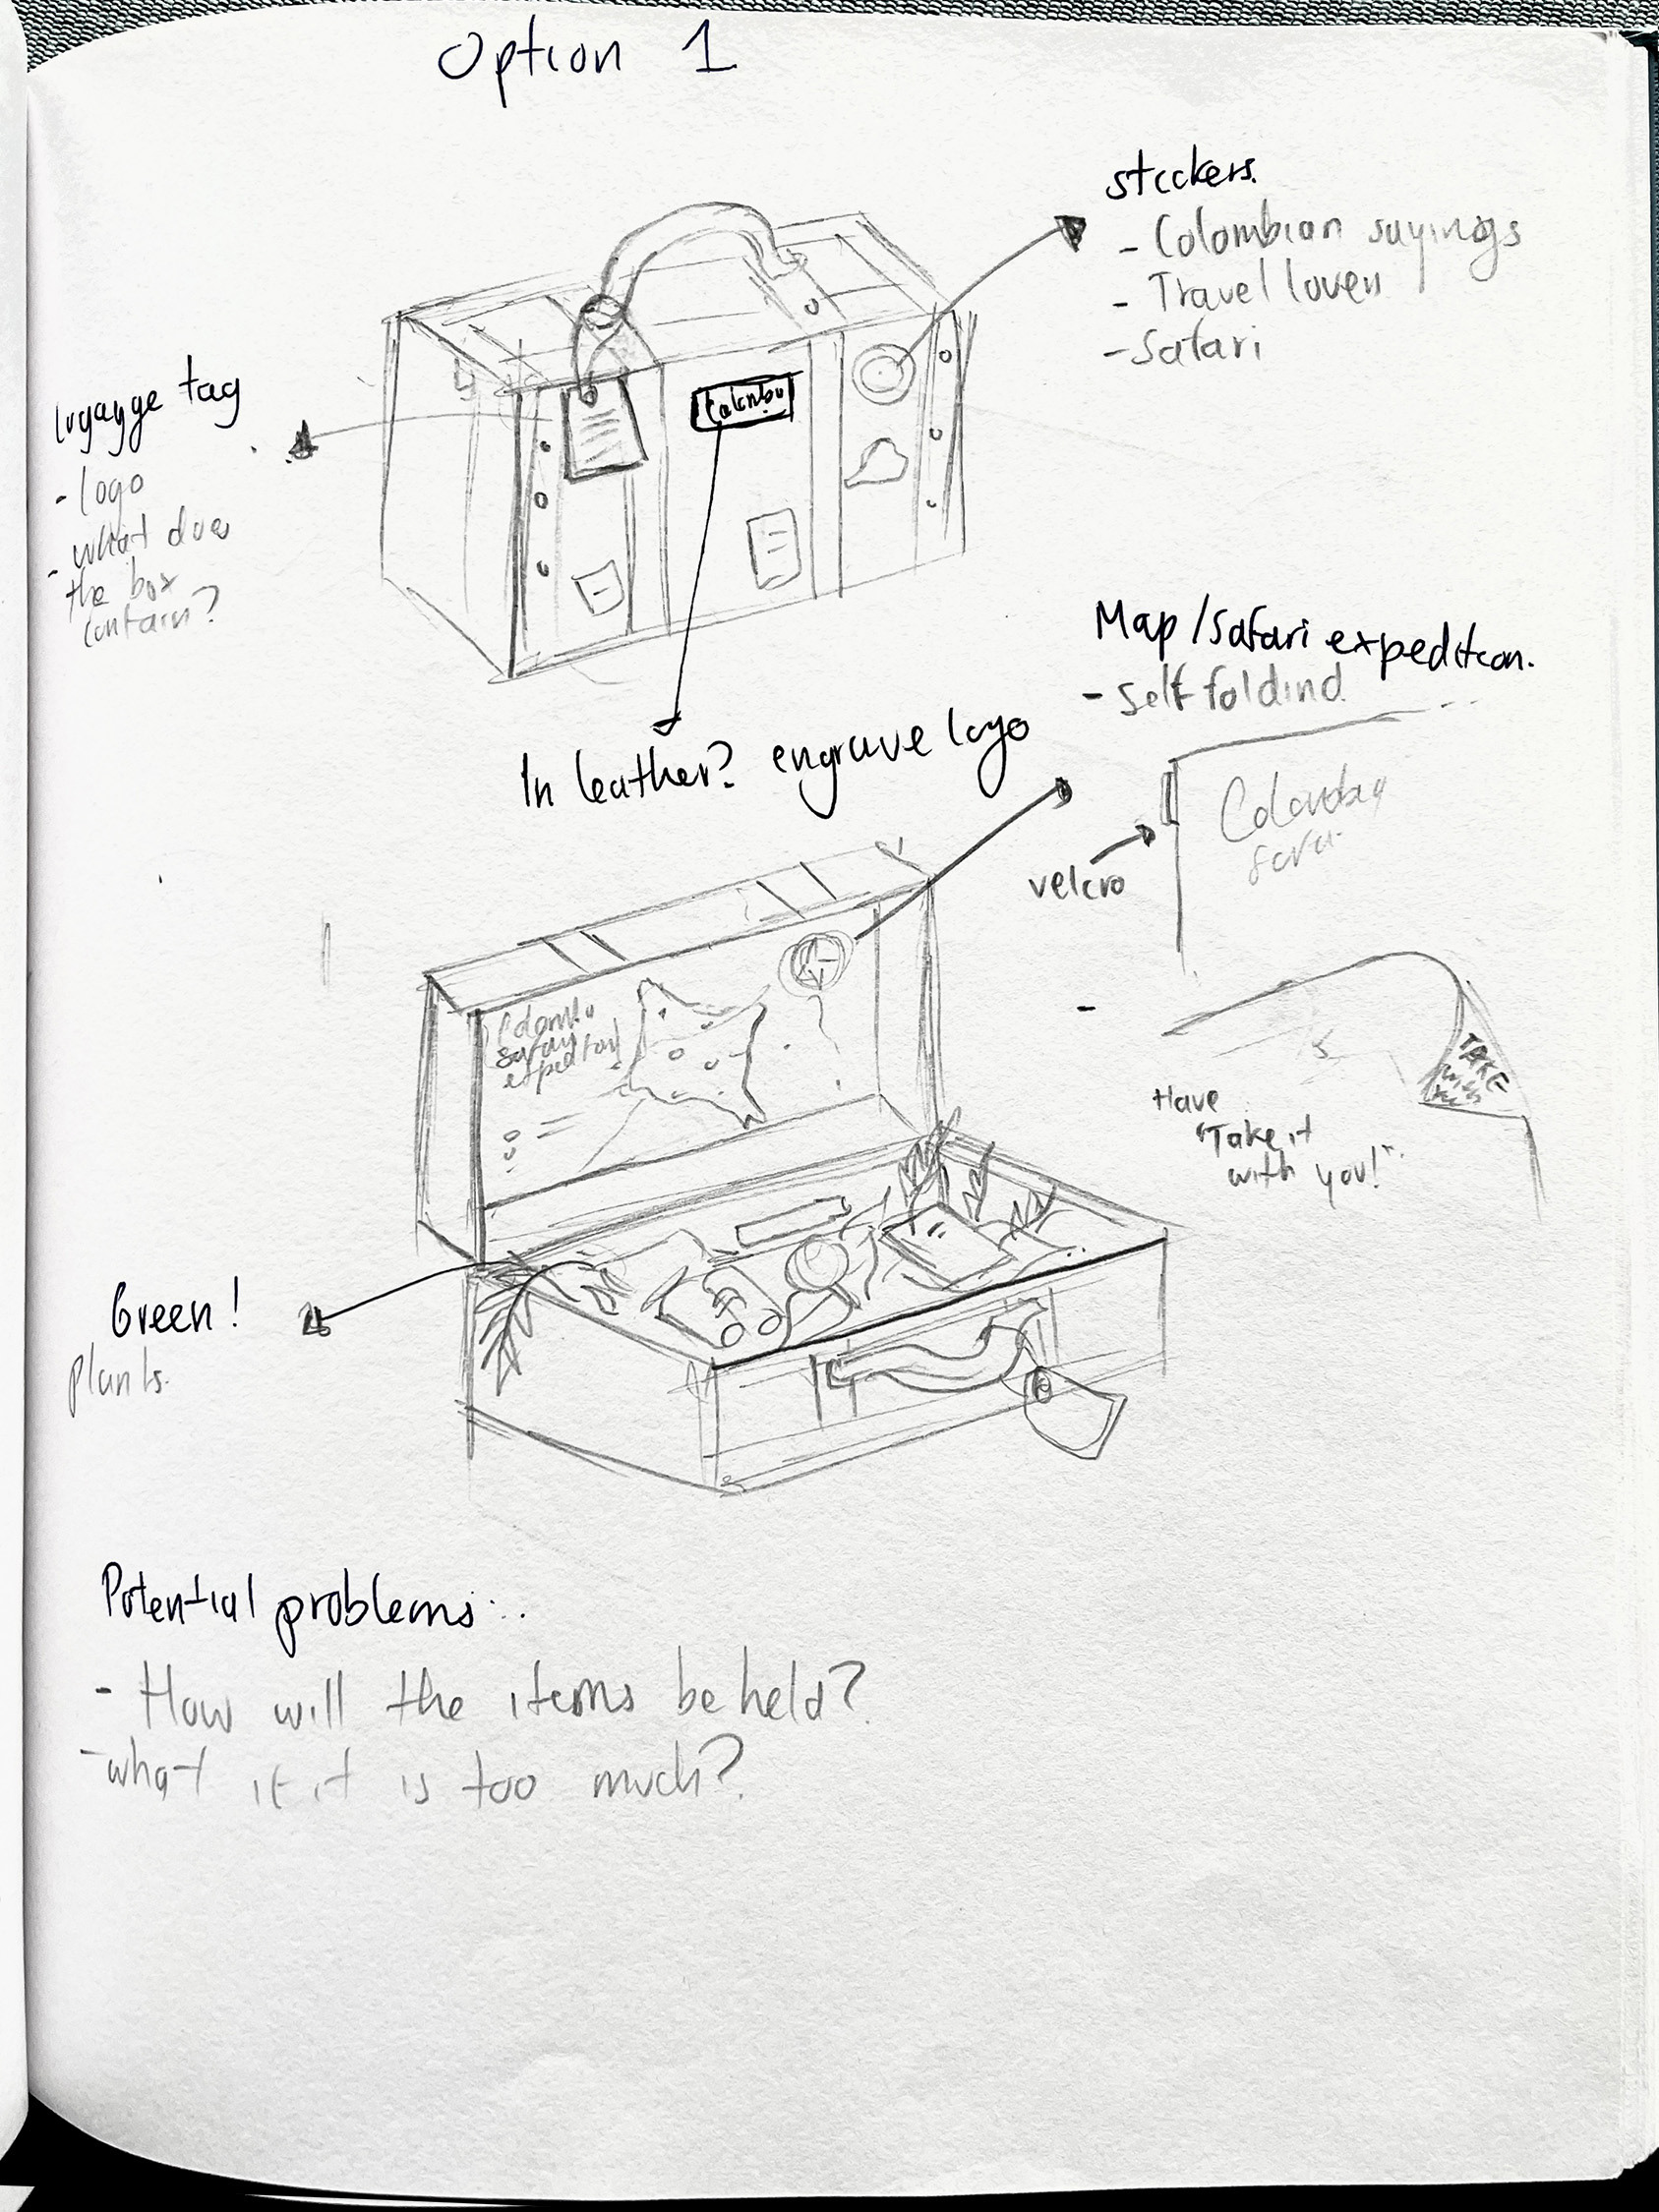 Option 1
stickers.
- Colombian sayings
- Travel lover
- Safari
lugagge tag
- logo
- what does
the box
contain?
Map / Safari expedition.
- Self foldind
In leather? engrave logo
velcro
TAKE
with
Have
"Take it
with you!"
Green!
plants.
Potential problems:
- How will the items be held?
- what if it is too much?